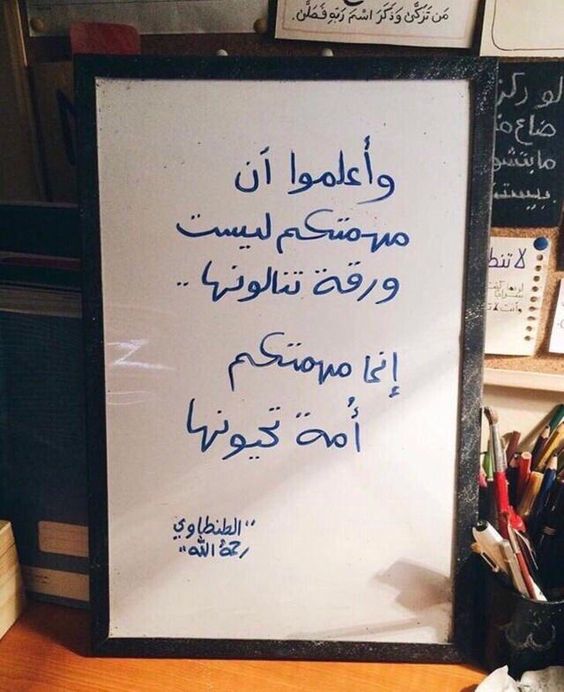 من تزكى وذكر اسم ربه فصلى.
وأعلموا أن
مهمتكم ليست
ورقة تنالونها ..
إنما مهمتكم
أمة تحيونها
"الطنطاوي
رحمه الله"
لو ركز
ضاع
لا تنط